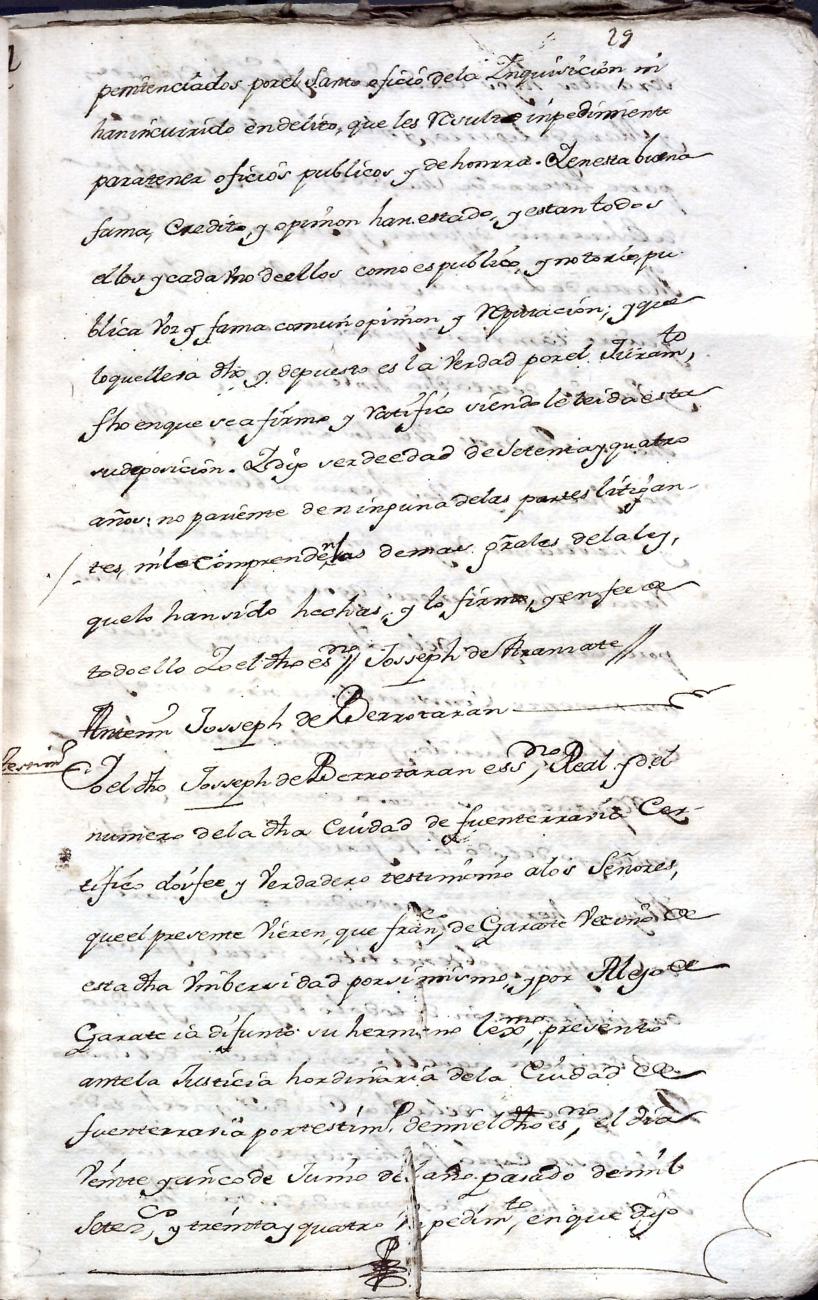 29
penitenciados por el Santo oficio de la Inquisicion ni
han incurrido en delito, que les Resulte inpedimento
para tener oficios publicos y de honrra. Y en esta buena
fama, Credito, y opinion han estado, y estan todos
ellos y cada Vno de ellos como es publico, y notorio, pu-
blica Voz y fama comun opinion y Reputacion; y que
lo que lleva dho y depuesto es la Verdad por el Juramto,
fho en que se afirmo y Ratifico siendole leida esta
su deposicion. Y dijo ser de edad de Setenta y quatro
años; no pariente de ninguna de las partes litigan-
tes, ni le comprenden las demas grales de la ley,
que lo han sido hechas, y lo firmo, y en fee de
todo ello Yo el dho esno // Josseph de Aramate //
Antemi Josseph de Berrotaran
Testimo
Yo el dho Josseph de Berrotaran essno, Real y del
numero de la dha Ciudad de fuenterravia Cer-
tifico doi fee y Verdadero testimonio a los Señores,
que el presente Vieren, que franco, de Garate Vecino de
esta dha Vnibersidad por si mismo, y por Alejo de
Garate ia difunto su hermano lexmo, presento
ante la Justicia hordinaria de la Ciudad de
fuenterravia por testimo, de mi el dho esno, el dia
Veinte y cinco de Junio del año pasado de mil
Setezos, y treinta y quatro Vn pedimto, en que dijo